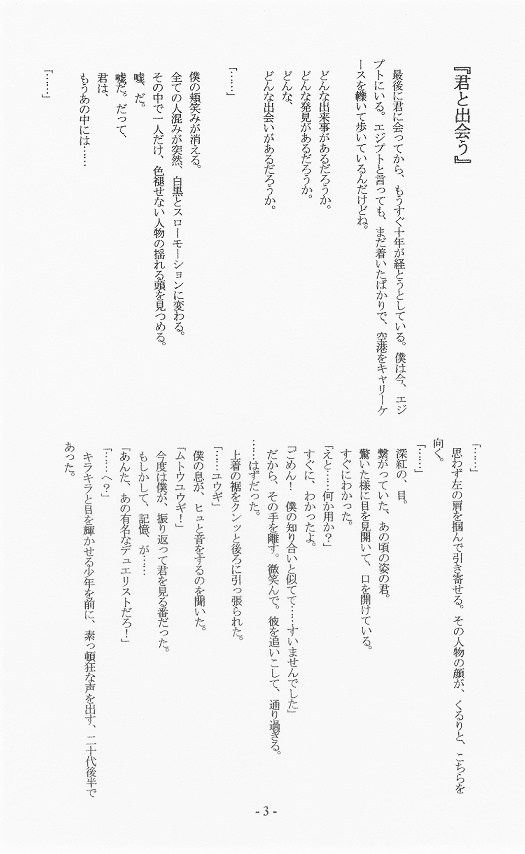 『君と出会う』
　最後に君に会ってから、もうすぐ十年が経とうとしている。僕は今、エジ
プトにいる。エジプトと言っても、まだ着いたばかりで、空港をキャリーケ
ースを轢いて歩いているんだけどね。
どんな出来事があるだろうか。
どんな発見があるだろうか。
どんな、
どんな出会いがあるだろうか。
「……」
僕の頬笑みが消える。
全ての人混みが突然、白黒とスローモーションに変わる。
その中で一人だけ、色褪せない人物の揺れる頭を見つめる。
嘘、だ。
嘘だ。だって、
君は、
もうあの中には……
「……」
「……」
　思わず左の肩を掴んで引き寄せる。その人物の顔が、くるりと、こちらを
向く。
「……」
深紅の、目。
繋がっていた、あの頃の姿の君。
驚いた様に目を見開いて、口を開けている。
すぐにわかった。
「えと……何か用か？」
すぐに、わかったよ。
「ごめん！　僕の知り合いと似てて……すいませんでした」
だから、その手を離す。微笑んで。彼を追いこして、通り過ぎる。
……はずだった。
上着の裾をクンッと後ろに引っ張られた。
「……ユウギ」
僕の息が、ヒュと音をするのを聞いた。
「ムトウユウギ！」
今度は僕が、振り返って君を見る番だった。
もしかして、記憶、が……
「あんた、あの有名なデュエリストだろ！」
「……へ？」
　キラキラと目を輝かせる少年を前に、素っ頓狂な声を出す、二十代後半で
あった。
- 3 -